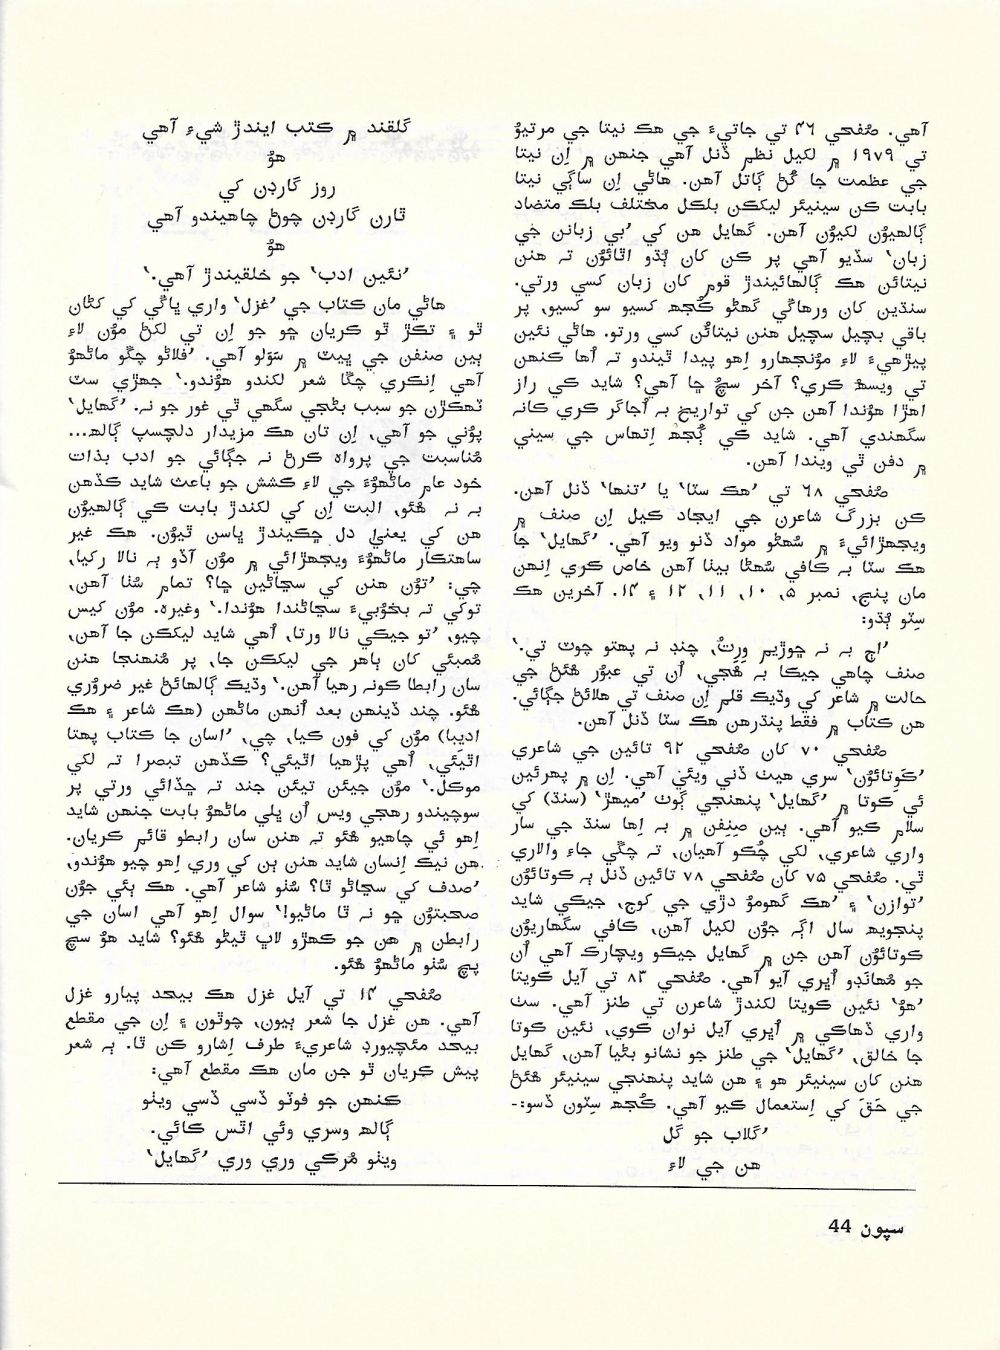 آهي. صُفحي ۴٦ تي جاتيءَ جي هڪ نيتا جي مرتيوُ
تي ۱۹۷۹ ۾ لکيل نظم ڏنل آهي جنهن ۾ اِن نيتا
جي عظمت جا گُڻ ڳاتل آهن. هاڻي اِن ساڳي نيتا
بابت کن سينيئر ليکڪن بلڪل مختلف بلڪ متضاد
ڳالهيوُن لکيوُن آهن. گهايل هن کي ’بي زبانن جي
زبان‘ سڏيو آهي پر ڪن کان ٻُڌو اٿائوُن تہ هنن
نيتائن هڪ ڳالهائيندڙ قوم کان زبان کسي ورتي.
سنڌين کان ورهاڱي گهڻو ڪُجهہ کسيو سو کسيو، پر
باقي بچيل سچيل هنن نيتائُن کسي ورتو. هاڻي نئين
پيڙهيءَ لاءِ موُنجهارو اِهو پيدا ٿيندو تہ اُها ڪنهن
تي ويسهہُ ڪري؟ آخر سچُ ڇا آهي؟ شايد ڪي راز
اهڙا هوُندا آهن جن کي تواريخ بہ اُجاگر ڪري ڪانہ
سگهندي آهي. شايد ڪي ڳُجهہ اِتهاس جي سيني
۾ دفن ٿي ويندا آهن.
صُفحي ٦۸ تي ’هڪ سٽا‘ يا ’تنها‘ ڏنل آهن.
ڪن بزرگ شاعرن جي ايجاد ڪيل اِن صنف ۾
ويجهڙائيءَ ۾ سُهڻو مواد ڏنو ويو آهي. ’گهايل‘ جا
هڪ سٽا بہ ڪافي سُهڻا بيٺا آهن خاص ڪري اِنهن
مان پنج، نمبر ۵، ۱۰، ۱۱، ۱۲ ۽ ۱۴. آخرين هڪ
سِٽو ٻُڌو:
’اڄ بہ نہ ڇوڙيم وِرِٽُ، چنڊ نہ پهتو چوٽ تي.‘
صنف چاهي جيڪا بہ هُجي، اُن تي عبوُر هُئڻ جي
حالت ۾ شاعر کي وڌيڪ قلم اِن صنف تي هلائڻ جڳائي.
هن ڪتاب ۾ فقط پندرهن هڪ سٽا ڏنل آهن.
صُفحي ۷۰ کان صُفحي ۹۲ تائين جي شاعري
’ڪَوِتائوُن‘ سري هيٺ ڏني ويئي آهي. اِن ۾ پهرئين
ئي ڪوتا ۾ ’گهايل‘ پنهنجي ڳوٺ ’ميهڙ‘ (سنڌ) کي
سلام ڪيو آهي. ٻين صِنفن ۾ بہ اِها سنڌ جي سار
واري شاعري، لکي چُڪو آهيان، تہ چڱي جاءِ والاري
ٿي. صُفحي ۷۵ کان صُفحي ۷۸ تائين ڏنل ٻہ ڪوتائوُن
’توازن‘ ۽ ’هڪ گهوموُ دڙي جي کوج، جيڪي شايد
پنجويهہ سال اڳہ جوُن لکيل آهن، ڪافي سگهاريوُن
ڪوتائوُن آهن جن ۾ گهايل جيڪو ويچارڪ آهي اُن
جو مُهانڊو اُڀري آيو آهي. صُفحي ۸۳ تي آيل ڪويتا
’هوُ‘ نئين ڪويتا لکندڙ شاعرن تي طنز آهي. سٺ
واري ڏهاڪي ۾ اُڀري آيل نوان ڪوي، نئين ڪوتا
جا خالق، ’گهايل‘ جي طنز جو نشانو بڻيا آهن، گهايل
هنن کان سينيئر هو ۽ هن شايد پنهنجي سينيئر هُئڻ
جي حَقَ کي اِستعمال ڪيو آهي. ڪُجهہ سِٽون ڏسو:-
’گلاب جو گل
هن جي لاءِ
گلقند ۾ ڪتب ايندڙ شيءِ آهي
هوُ
روز گارڊن کي
ٿارن گارڊن چوڻ چاهيندو آهي
هوُ
’نئين ادب‘ جو خلقيندڙ آهي.‘
هاڻي مان ڪتاب جي ’غزل‘ واري ڀاڱي کي کڻان
ٿو ۽ تڪڙ ٿو ڪريان ڇو جو اِن تي لکڻ موُن لاءِ
ٻين صنفن جي ڀيٽ ۾ سَوَلو آهي. ’فلاڻو چڱو ماڻهوُ
آهي اِنڪري چڱا شعر لکندو هوُندو.‘ جهڙي سٽ
ٽهڪڙن جو سبب بڻجي سگهي ٿي غور جو نہ. ’گهايل‘
پوُني جو آهي، اِن تان هڪ مزيدار دلچسپ ڳالهہ...
مُناسبت جي پرواهہ ڪرڻ نہ جڳائي جو ادب بذات
خود عام ماڻهوُءَ جي لاءِ ڪشش جو باعث شايد ڪڏهن
بہ نہ هُئو، البت اِن کي لکندڙ بابت ڪي ڳالهيوُن
هن کي يعنيٰ دل ڇڪيندڙ ڀاسن ٿيوُن. هڪ غير
ساهتڪار ماڻهوُءَ ويجهڙائي ۾ موُن آڏو ٻہ نالا رکيا،
چي: ’توُن هنن کي سڃاڻين ڇا؟ تمام سُٺا آهن،
توکي تہ بخوُبيءَ سڃاڻندا هوُندا.‘ وغيرہ. موُن کيس
چيو، ’تو جيڪي نالا ورتا، اُهي شايد ليکڪن جا آهن،
مُمبئي کان ٻاهر جي ليکڪن جا، پر مُنهنجا هنن
سان رابطا ڪونہ رهيا آهن.‘ وڌيڪ ڳالهائڻ غير ضروُري
هُئو. چند ڏينهن بعد اُنهن ماڻهن (هڪ شاعر ۽ هڪ
اديبا) موُن کي فون کيا، چي، ’اسان جا ڪتاب پهتا
اٿيَئي، اُهي پڙهيا اٿيئي؟ ڪڏهن تبصرا تہ لکي
موڪل.‘ موُن جيئن تيئن جند تہ ڇڏائي ورتي پر
سوچيندو رهجي ويس اُن ڀلي ماڻهوُ بابت جنهن شايد
اِهو ئي چاهيو هُئو تہ هنن سان رابطو قائم ڪريان.
هن نيڪ اِنسان شايد هنن ٻن کي وري اِهو چيو هوُندو،
’صدف کي سڃاڻو ٿا؟ سُٺو شاعر آهي. هڪ ٻئي جوُن
صحبتوُن ڇو نہ ٿا ماڻيو!‘ سوال اِهو آهي اسان جي
رابطن ۾ هن جو ڪهڙو لاڀ ٿيڻو هُئو؟ شايد هوُ سچ
پچ سُٺو ماڻهوُ هُئو.
صُفحي ۱۴ تي آيل غزل هڪ بيحد پيارو غزل
آهي. هن غزل جا شعر ٻيون، چوٿون ۽ اِن جي مقطع
بيحد مئچيورڊ شاعريءَ طرف اِشارو ڪن ٿا. ٻہ شعر
پيش ڪريان ٿو جن مان هڪ مقطع آهي:
ڪنهن جو فوٽو ڏسي ڏسي ويٺو
ڳالهہ وسري وئي اٿس کائي.
ويٺو مُرڪي وري وري ’گهايل‘
سپون 44